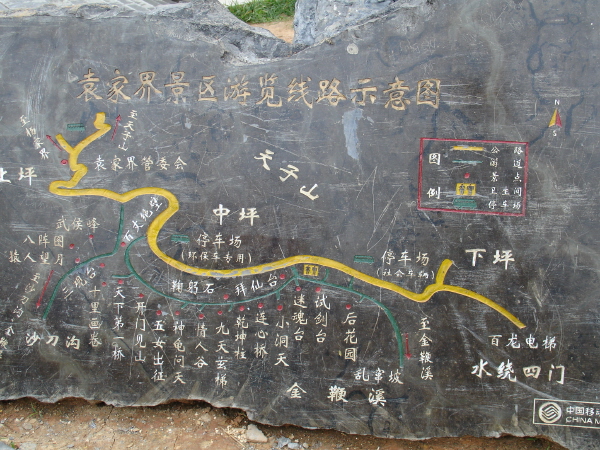 袁家界景区游览线路示意图
至天子山
袁家界管委会
天子山
上坪
中坪
下坪
N
S
图例
公路
游道
景点
卫生间
停车场
武侯峰
八阵图
猿人望月
停车场
(环保车专用)
停车场
(社会车辆)
鞠躬石
拜仙台
沙刀沟
十里画卷
天下第一桥
一开门见山
五女出征
神龟问天
情人谷
九天玄梯
乾坤柱
连心桥
小洞天
迷魂台
试剑台
后花园
乱窜坡
至金鞭溪
金鞭溪
百龙电梯
水绕四门
中国移动
CHINA M